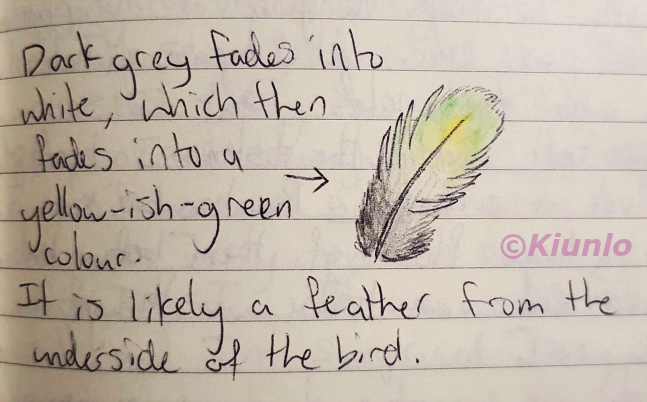 Dark grey fades into
white, which then
fades into a
yellow-ish-green
colour.
It is likely a feather from the
underside of the bird.
©Kiunlo